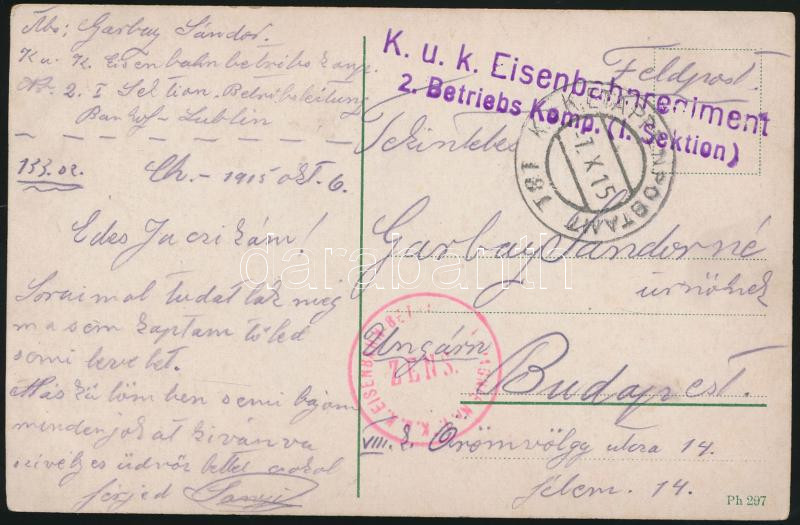 Abs: Garbay Sándor.
K. u. K. Eisenbahnbetriebskomp.
Nr. 2. I Sektion. Betriebsleitung
Banhof - Lublin
133. sz. Ch. - 1915 okt. 6.
Edes Jaczikám!
Soraimal tudatlak meg
ma sem kaptam tőled
semi levelet.
Más külömben semi bajom
mindenjokat kivánva
szivelyes üdvözlettel csokol
ferjed Sanyi
K. u. k. Eisenbahnregiment
2. Betriebs Komp. (1. Sektion)
Feldpost.
K. u. K. ETAPPENPOSTAMT 181
7.X.15
Tekintetes
Garbay Sándorné
úrnőnek
Ungarn
ZENS.
K.u.K. EISENBAHN
Budapest.
VIII. k. Örömvölgy utcza 14.
félem. 14.
Ph 297
darabanth